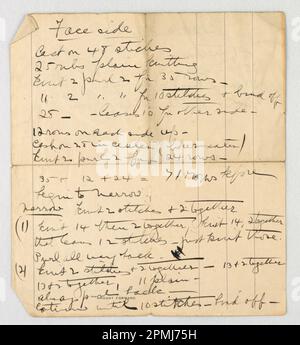 Face side
Cast on 48 stitches
25 ribs plain knitting
Knit 2 purl 2 for 35 rows
" 2 " " for 10 stitches + bind off
25 — leaves 10 for other side —
12 rows on each side up —
Cast on 25 in center
Knit 2 purl 2 for rows —
35 + 12 + 24 = 71 rows before
begin to narrow.
narrow Knit 2 stitches + 2 together
(1) Knit 14 then 2 together, Knit 14, 2 together
that leaves 12 stitches just knit those
Purl all way back.
(2) Knit 2 stitches + 2 together — 13 + 2 together
13 + 2 together, 11 plain —
always purl back
until 10 stitches — bind off —
alamy
Image ID: 2PMJ75H
www.alamy.com